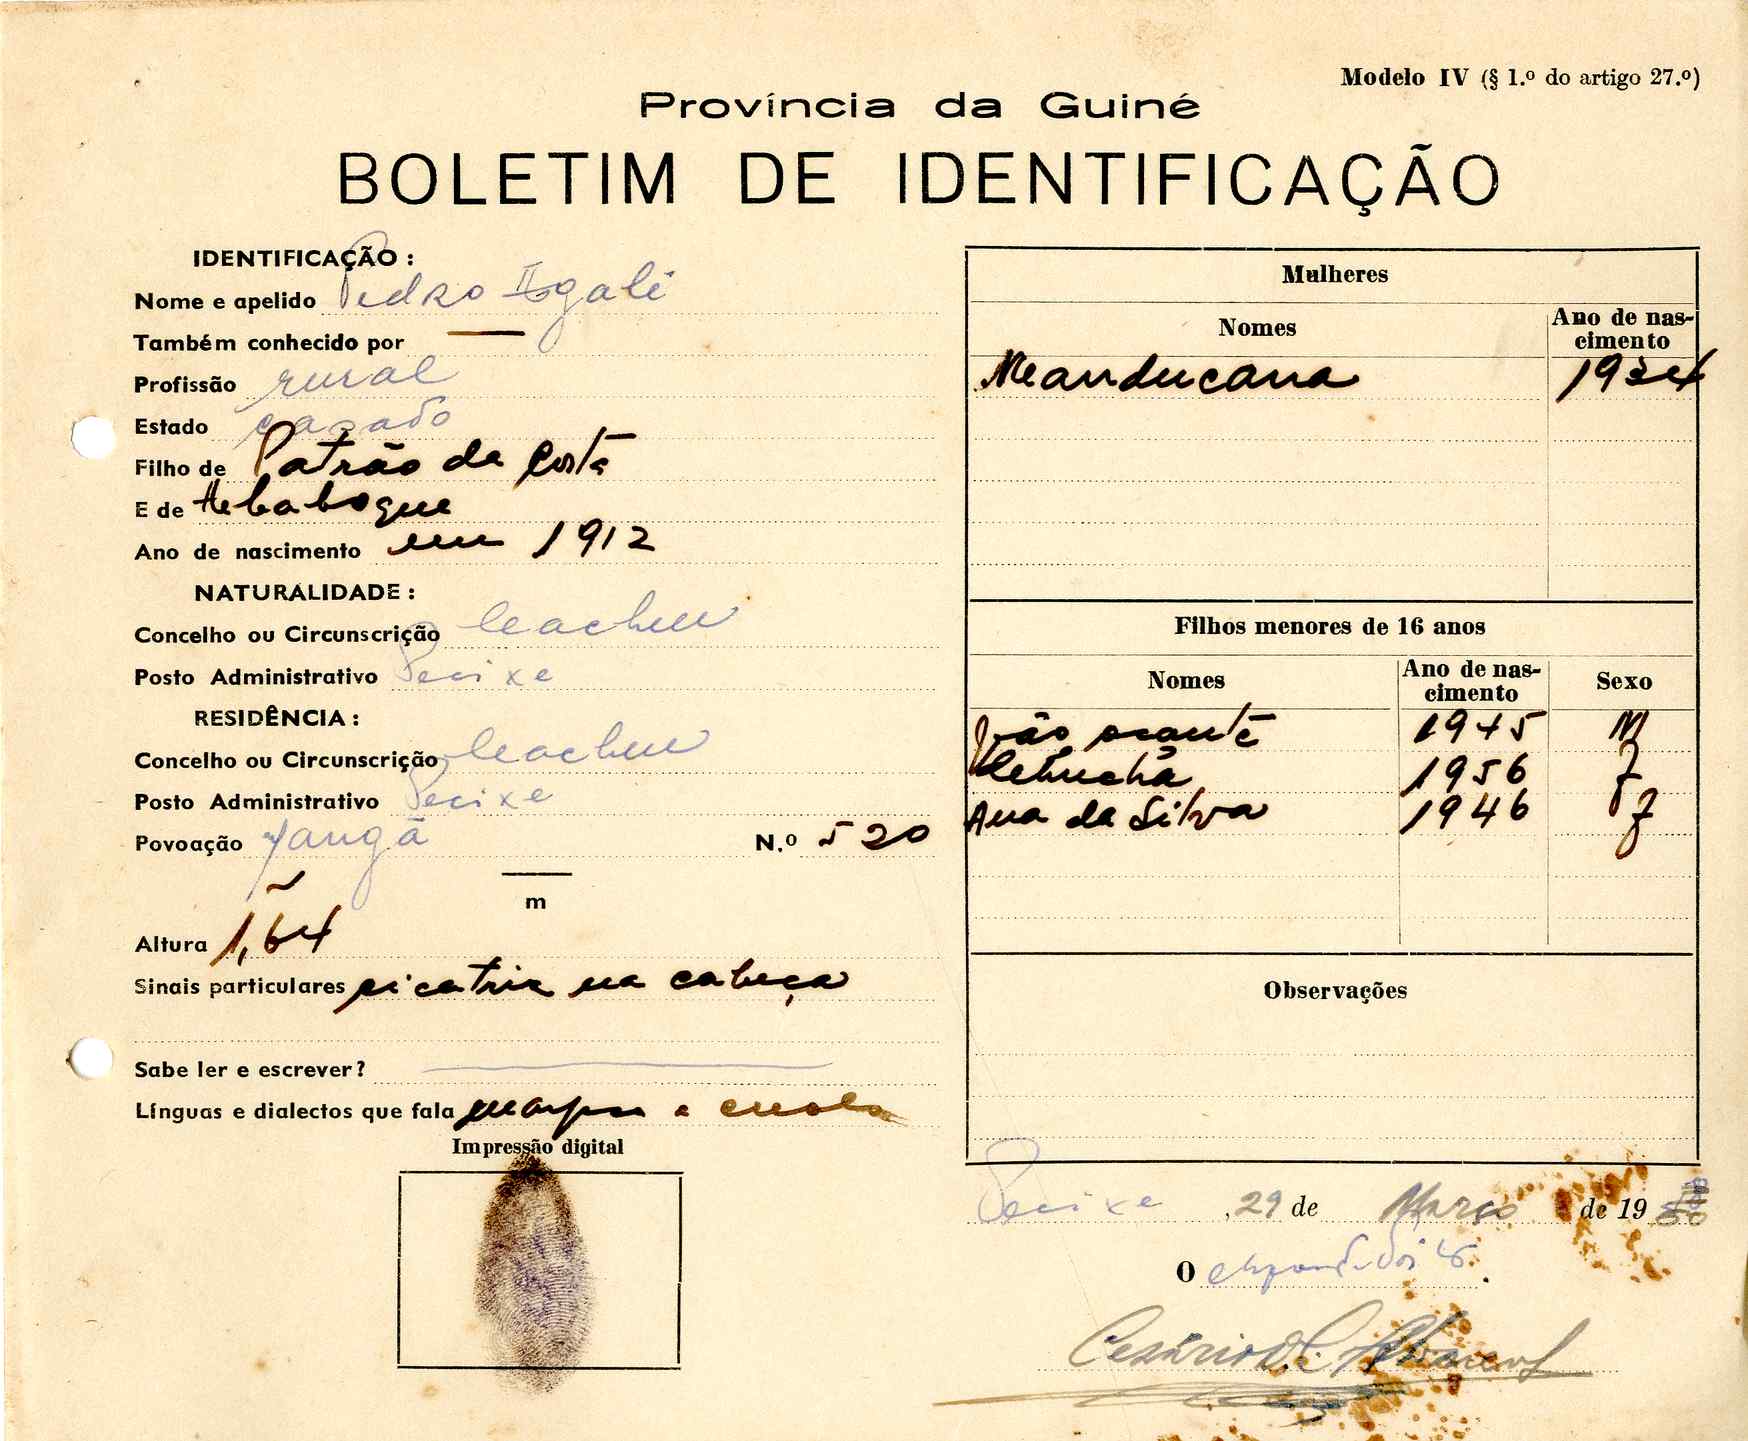 Modelo IV (§ 1.º do artigo 27.º)
Província da Guiné
BOLETIM DE IDENTIFICAÇÃO
IDENTIFICAÇÃO :
Nome e apelido Pedro
Também conhecido por —
Profissão rural
Estado casado
Filho de Patrão da Costa
E de
Ano de nascimento em 1912
NATURALIDADE :
Concelho ou Circunscrição Cacheu
Posto Administrativo Pecixe
RESIDÊNCIA :
Concelho ou Circunscrição Cacheu
Posto Administrativo Pecixe
Povoação N.º 520
m
Altura 1,64
Sinais particulares cicatriz na cabeça
Sabe ler e escrever? —
Línguas e dialectos que fala
Impressão digital
Mulheres
Nomes Ano de nascimento
Manducana 1934
Filhos menores de 16 anos
Nomes Ano de nascimento Sexo
João 1945 M
1956 F
Ana da Silva 1946 F
Observações
Pecixe, 29 de Março de 19
O